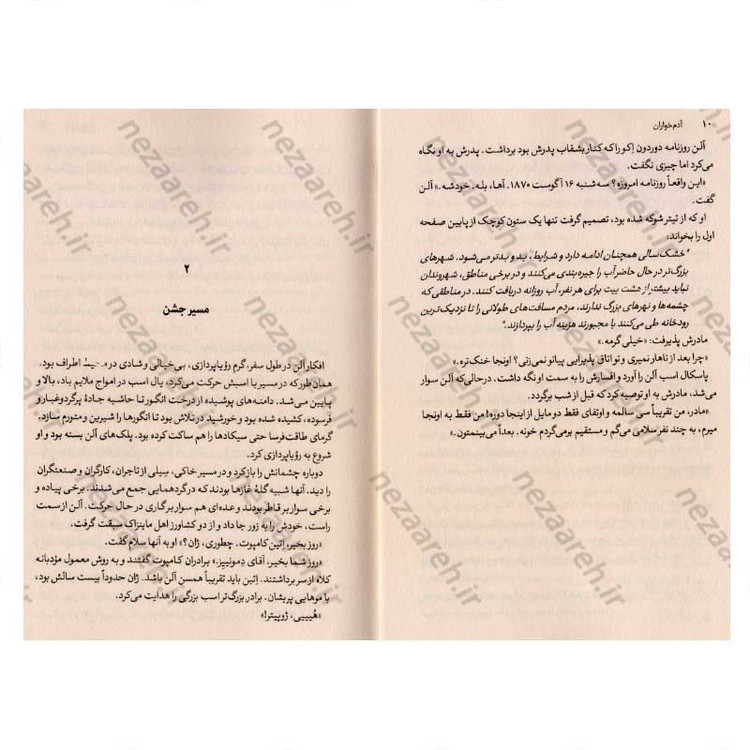 ۱۰ آدم‌خواران
آلن روزنامه دوردون اِکو را که کنار بشقاب پدرش بود برداشت. پدرش به او نگاه
می‌کرد اما چیزی نگفت.
«این واقعاً روزنامه امروزه؟ سه‌شنبه ۱۶ آگوست ۱۸۷۰. آها، بله. خودشه.» آلن
گفت.
او که از تیتر شوکه شده بود، تصمیم گرفت تنها یک ستون کوچک از پایین صفحه
اول را بخواند:
"خشک‌سالی همچنان ادامه دارد و شرایط، بد و بدتر می‌شود. شهرهای
بزرگ‌تر در حال حاضر آب را جیره‌بندی می‌کنند و در برخی مناطق، شهروندان
نباید بیشتر از هشت پینت برای هر نفر، آب روزانه دریافت کنند. در مناطقی که
چشمه‌ها و نهرهای بزرگ ندارند، مردم مسافت‌های طولانی را تا نزدیک‌ترین
رودخانه طی می‌کنند یا مجبورند هزینه آب را بپردازند."
مادرش پذیرفت: «خیلی گرمه.»
«چرا بعد از ناهار نمیری و تو اتاق پذیرایی پیانو نمی‌زنی؟ اونجا خنک‌تره.»
پاسکال اسب آلن را آورد و افسارش را به سمت او نگه داشت. درحالی‌که آلن سوار
می‌شد، مادرش به او توصیه کرد که قبل از شب برگردد.
«مادر، من تقریباً سی سالمه و اوتفای فقط دو مایل از اینجا دوره! من فقط به اونجا
میرم، به چند نفر سلامی می‌گم و مستقیم برمی‌گردم خونه. بعداً می‌بینمتون.»
۲
مسیر جشن
افکار آلن در طول سفر، گرم رؤیاپردازی، بی‌خیالی و شادی در محیط اطراف بود.
همان‌طور که در مسیر با اسبش حرکت می‌کرد، یال اسب در امواج ملایم باد، بالا و
پایین می‌شد. دامنه‌های پوشیده از درخت انگور تا حاشیه جادهٔ پرگردوغبار و
فرسوده، کشیده شده بود و خورشید در تلاش بود تا انگورها را شیرین و متورم سازد.
گرمای طاقت‌فرسا حتی سیکادها را هم ساکت کرده بود. پلک‌های آلن بسته بود و او
شروع به رؤیاپردازی کرد.
دوباره چشمانش را باز کرد و در مسیر خاکی، سیلی از تاجران، کارگران و صنعتگران
را دید. آنها شبیه گلهٔ غازها بودند که در گردهمایی جمع می‌شدند. برخی پیاده و
برخی سوار بر قاطر بودند و عده‌ای هم سوار بر گاری در حال حرکت. آلن از سمت
راست، خودش را به زور جا داد و از دو کشاورز اهل ماینزاک سبقت گرفت.
«روز بخیر، اِتین کامپوت. چطوری، ژان؟» او به آنها سلام گفت.
«روز شما بخیر، آقای دِمونیيز.» برادران کامپوت گفتند و به روش معمول مؤدبانه
کلاه از سر برداشتند. اتین باید تقریباً همسن آلن باشد. ژان حدوداً بیست سالش بود،
با موهایی پریشان. برادر بزرگ‌تر اسب بزرگی را هدایت می‌کرد.
«هُیییی، ژوپیتر!»
nezaareh.ir
nezaareh.ir
nezaareh.ir
nezaareh.ir
nezaareh.ir
nezaareh.ir
nezaareh.ir
nezaareh.ir
nezaareh.ir